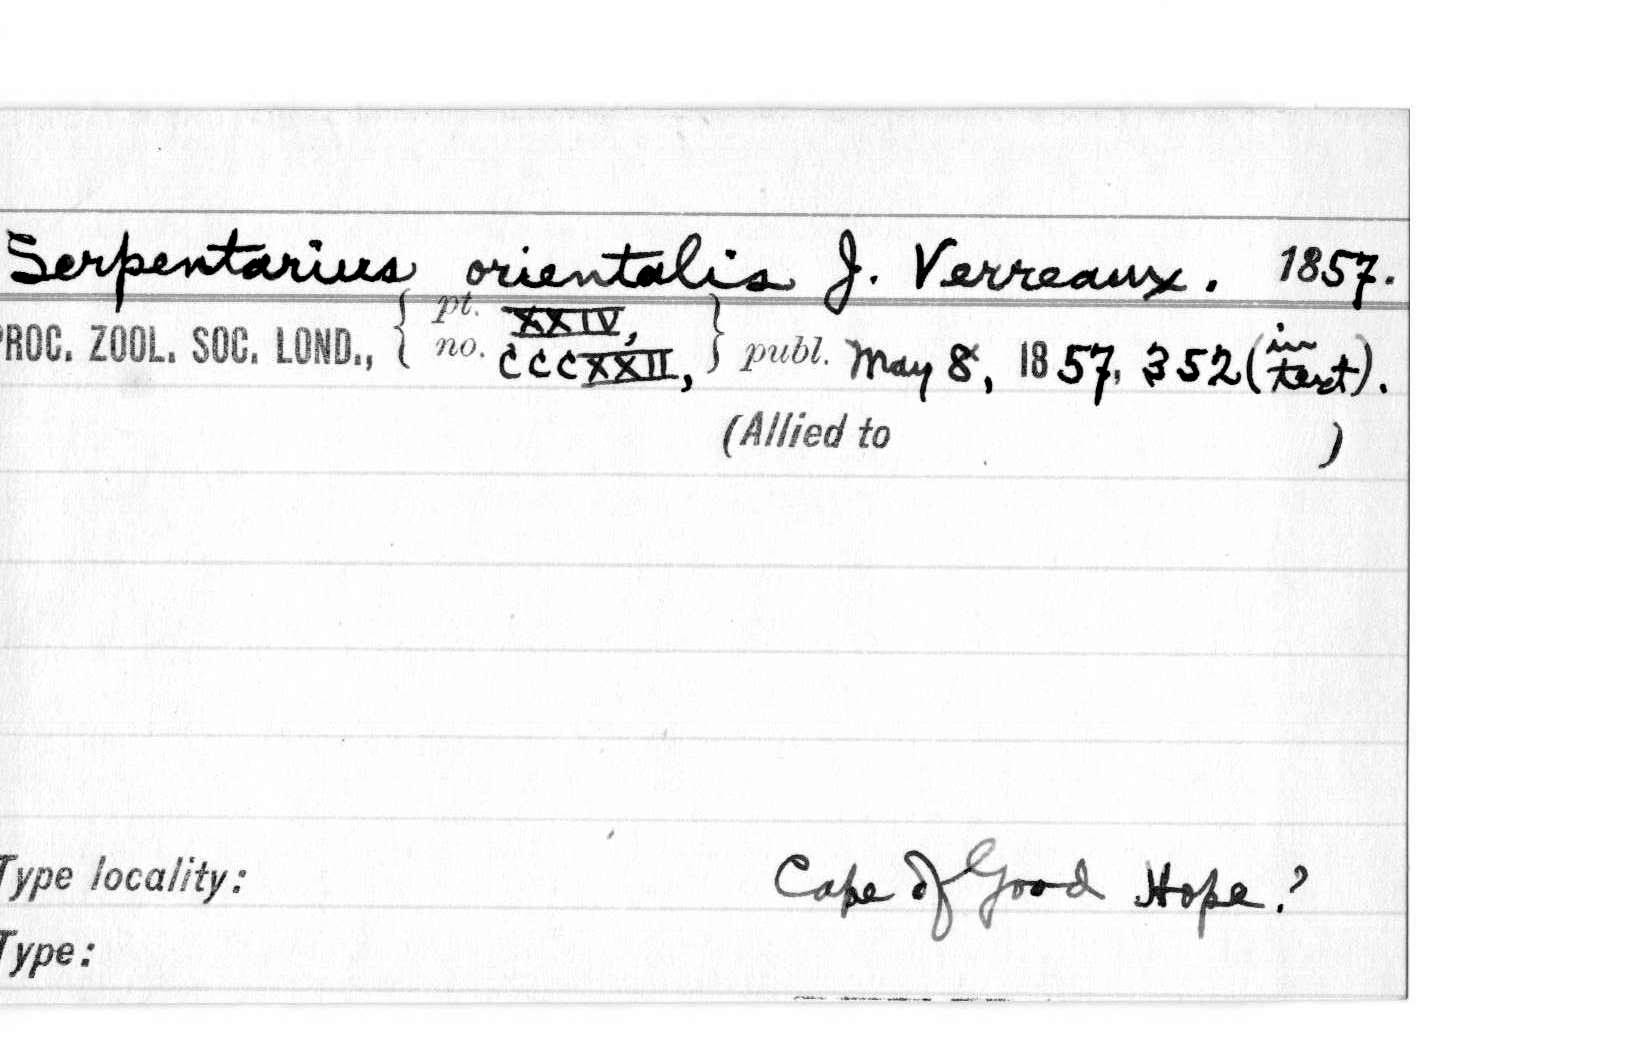 Serpentarius orientalis J. Verreaux. 1857.
PROC. ZOOL. SOC. LOND., { pt. XXIV, no. CCCXXII, } publ. May 8, 1857, 352 (in text).
(Allied to )
Type locality: Cape of Good Hope?
Type: